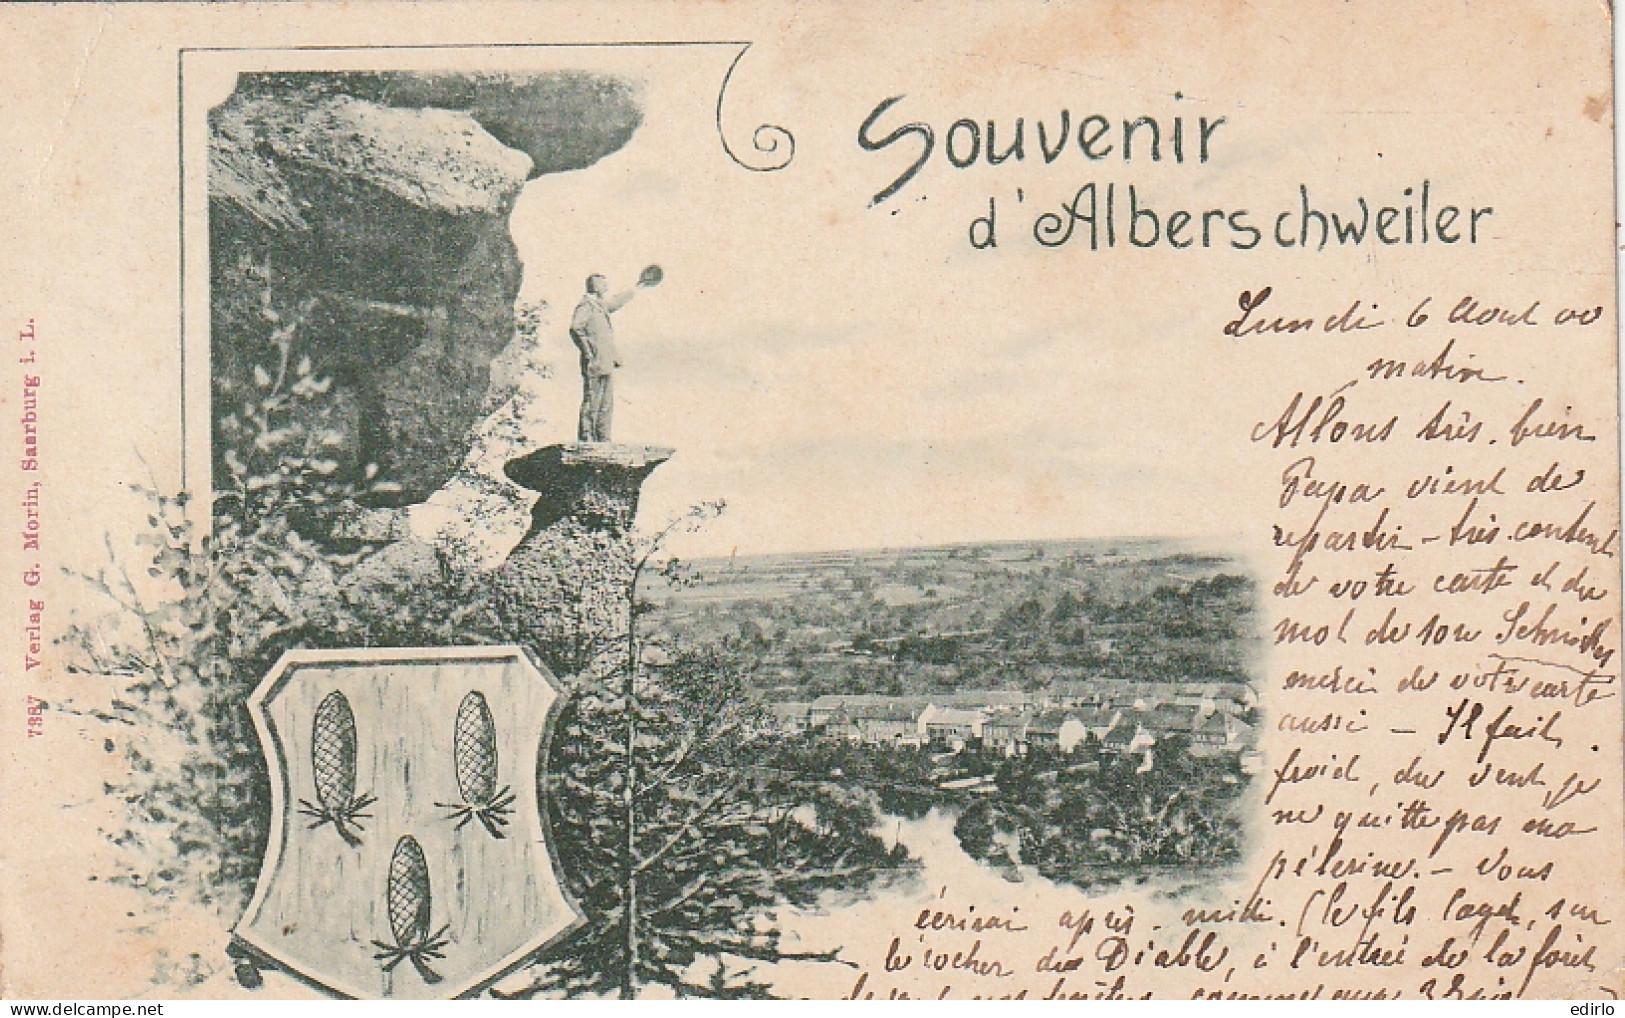 Souvenir
d'Alberschweiler
Lundi 6 Aout 00
matin.
Allons très bien
Papa vient de
repartir - très content
de votre carte et du
mot de son
merci de votre carte
aussi - Il fait
froid, du vent, je
ne quitte pas ma
pélerine. - Vous
écrirai après-midi. (le fils
le rocher du Diable, à l'entrée de la forêt
7387 Verlag G. Morin, Saarburg i. L.
edirlo